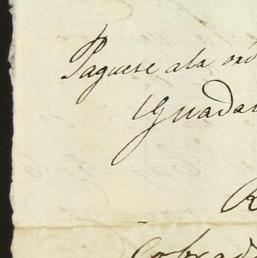 Paguese ala ord
Guadal
R
Cobrad